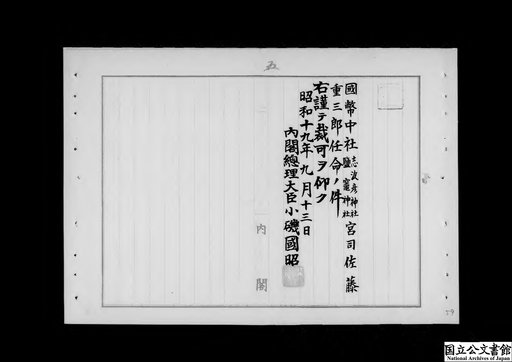 五
國幣中社志波彦神社鹽竈神社宮司佐藤
重三郎任命ノ件
右謹テ裁可ヲ仰ク
昭和十九年九月十三日
內閣總理大臣小磯國昭
內閣
国立公文書館
National Archives of Japan